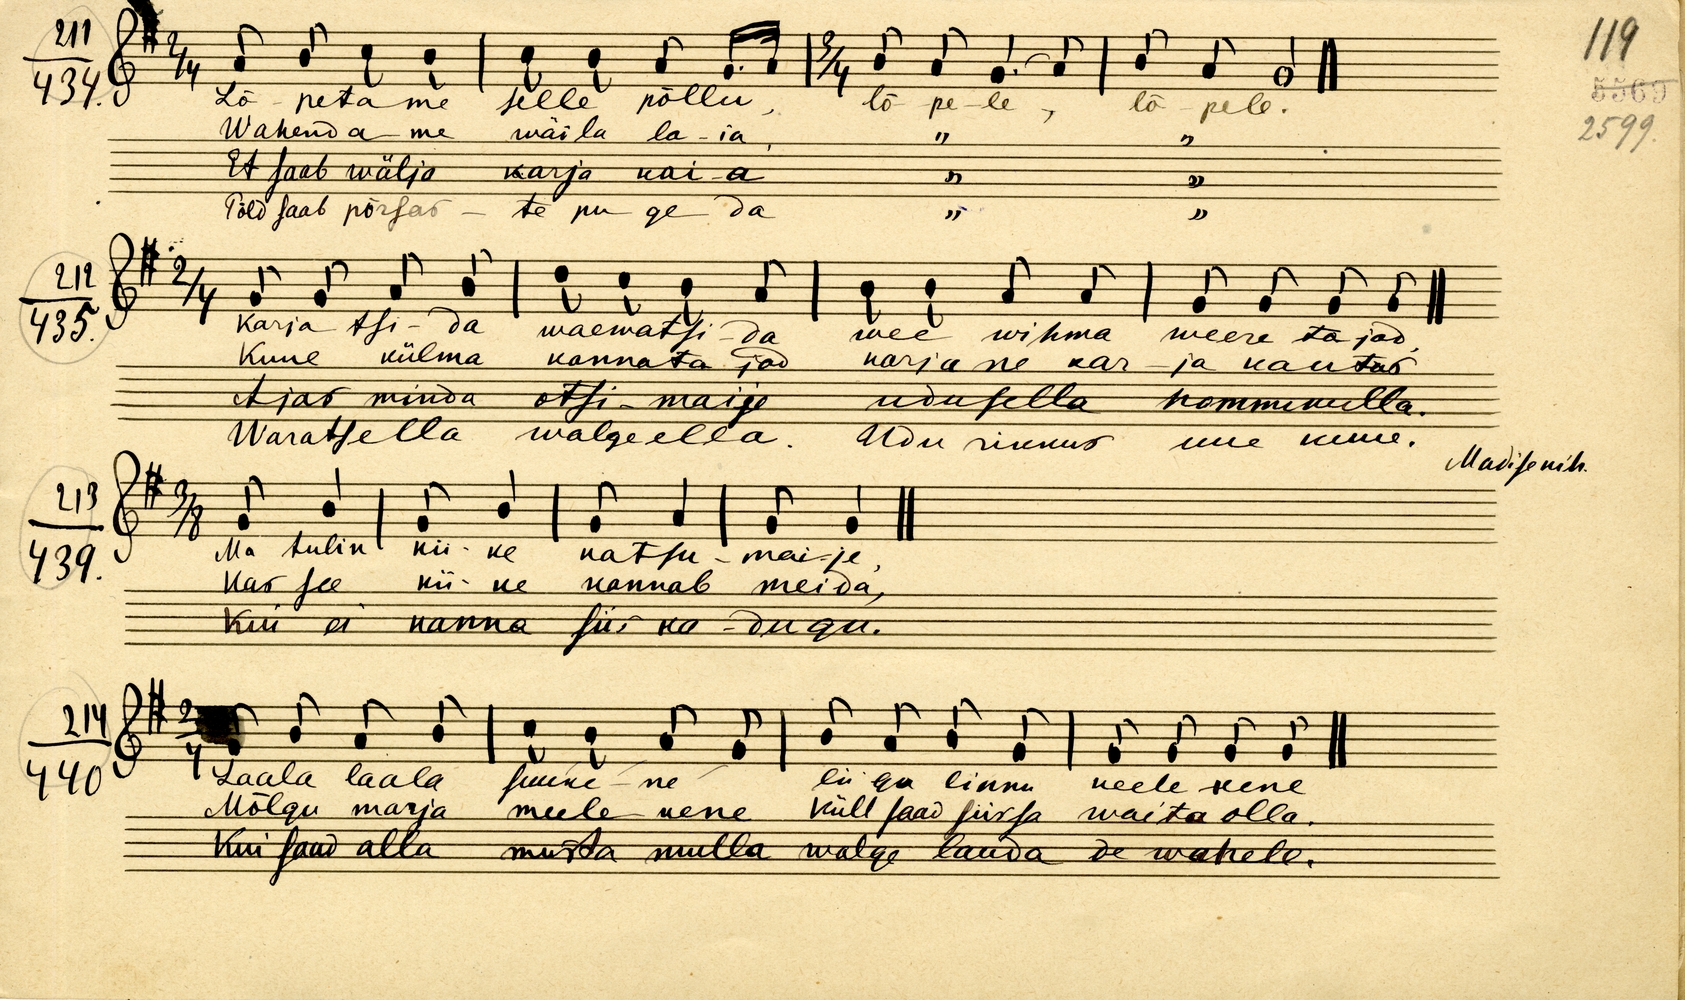 119
5569
2599.
211
434.
2/4 3/4
Lō - peta me selle põllu, lõ - pe - le, lõ - pele.
Wahenda - me wäila la - ia, " "
Et saab wälja karja kai - a " "
Põld saab põrsas - te pu ge da " "
212
435.
2/4
Karja tsi - da waewatsi - da wee wihma weere ta jad,
Kuue külma kannata jad karja ne kar - ja kautas
Ajas minda otsi - maije udusella hommikulla.
Waratsella walgeella. Udu rikkus uue kuue.
Madisenih.
213
439.
3/8
Ma tulin kii - ke katsu - mai - je,
Kas see kii - ke kannab meida,
Kui ei kanna siis ka - dugu.
214
440
2/4
Laala laala suuke - ne lii gu linnu keele kene
Mõlgu marja meele - kene Küll saad siissa waita olla.
Kui saad alla musta mulla walge lauda de wahele.